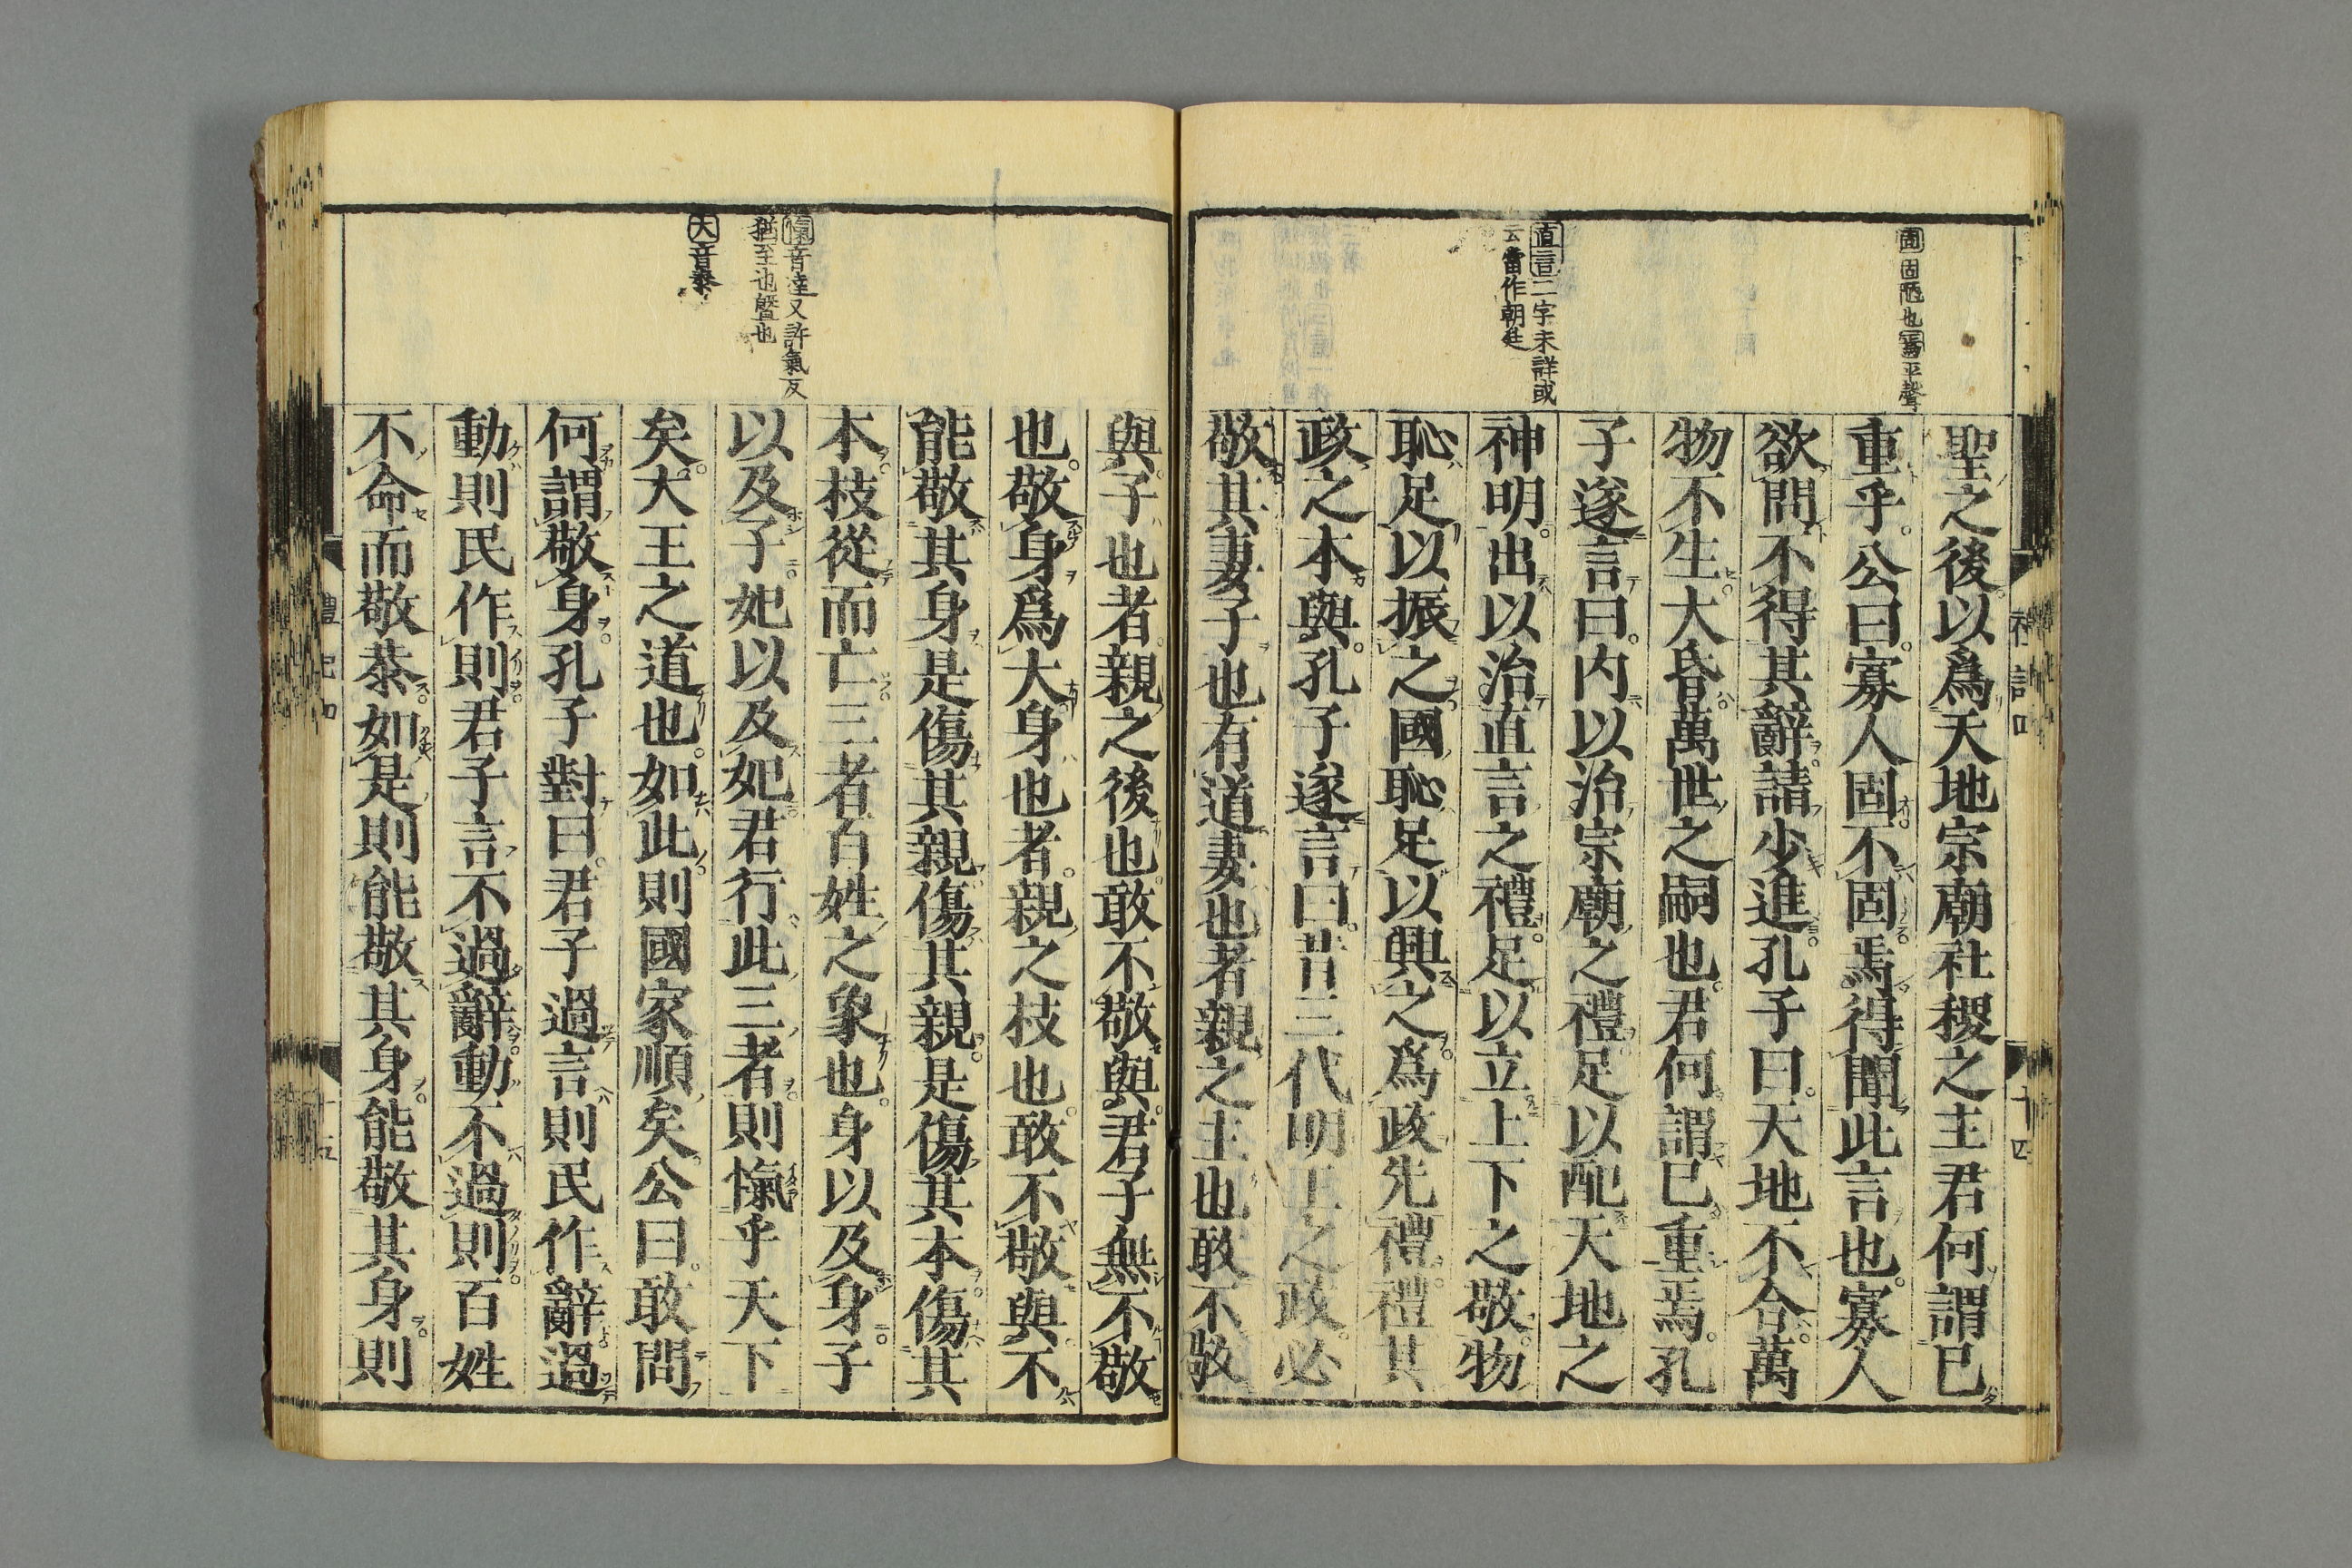 固固陋也焉平聲
直言二字未詳或
云當作朝廷
聖之後以爲天地宗廟社稷之主君何謂已
重乎公曰寡人固不固焉得聞此言也寡人
欲問不得其辭請少進孔子曰天地不合萬
物不生大昏萬世之嗣也君何謂已重焉孔
子遂言曰内以治宗廟之禮足以配天地之
神明出以治直言之禮足以立上下之敬物
恥足以振之國恥足以興之爲政先禮禮其
政之本與孔子遂言曰昔三代明王之政必
敬其妻子也有道妻也者親之主也敢不敬
愾音迄又許氣反
猶至也曁也
大音泰
與子也者親之後也敢不敬與君子無不敬
也敬身爲大身也者親之枝也敢不敬與不
能敬其身是傷其親傷其親是傷其本傷其
本枝從而亡三者百姓之象也身以及身子
以及子妃以及妃君行此三者則愾乎天下
矣大王之道也如此則國家順矣公曰敢問
何謂敬身孔子對曰君子過言則民作辭過
動則民作則君子言不過辭動不過則百姓
不命而敬恭如是則能敬其身能敬其身則